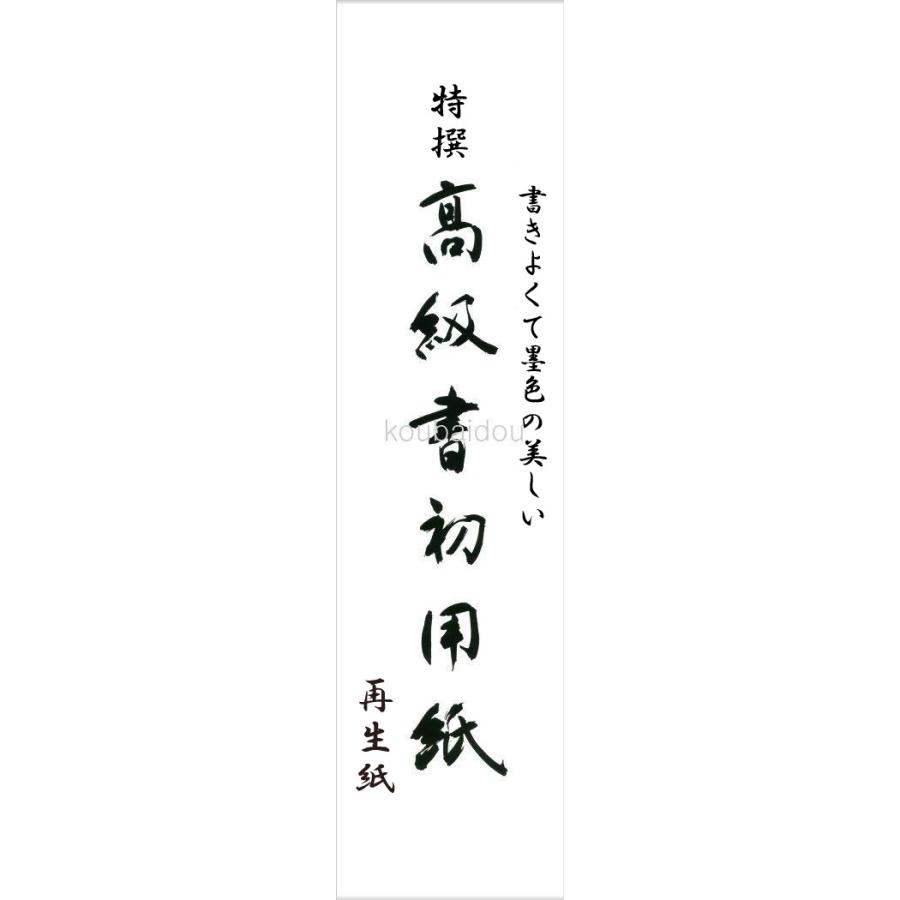 書きよくて墨色の美しい
特撰
高級書初用紙
再生紙
koubaidou